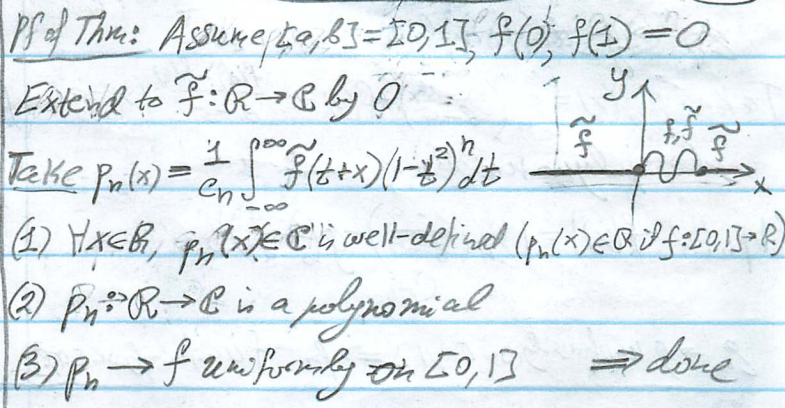 Pf of Thm: Assume [a,b]=[0,1], f(0), f(1)=0
Extend to f̃: ℝ→ℂ by 0
Take pₙ(x) = 1/cₙ ∫_{-∞}^{∞} f̃(t+x)(1-t²)ⁿ dt
y f̃ f,f̃ f̃ x
(1) ∀x∈ℝ, pₙ(x)∈ℂ is well-defined (pₙ(x)∈ℝ if f:[0,1]→ℝ)
(2) pₙ: ℝ→ℂ is a polynomial
(3) pₙ → f uniformly on [0,1] ⟹ done